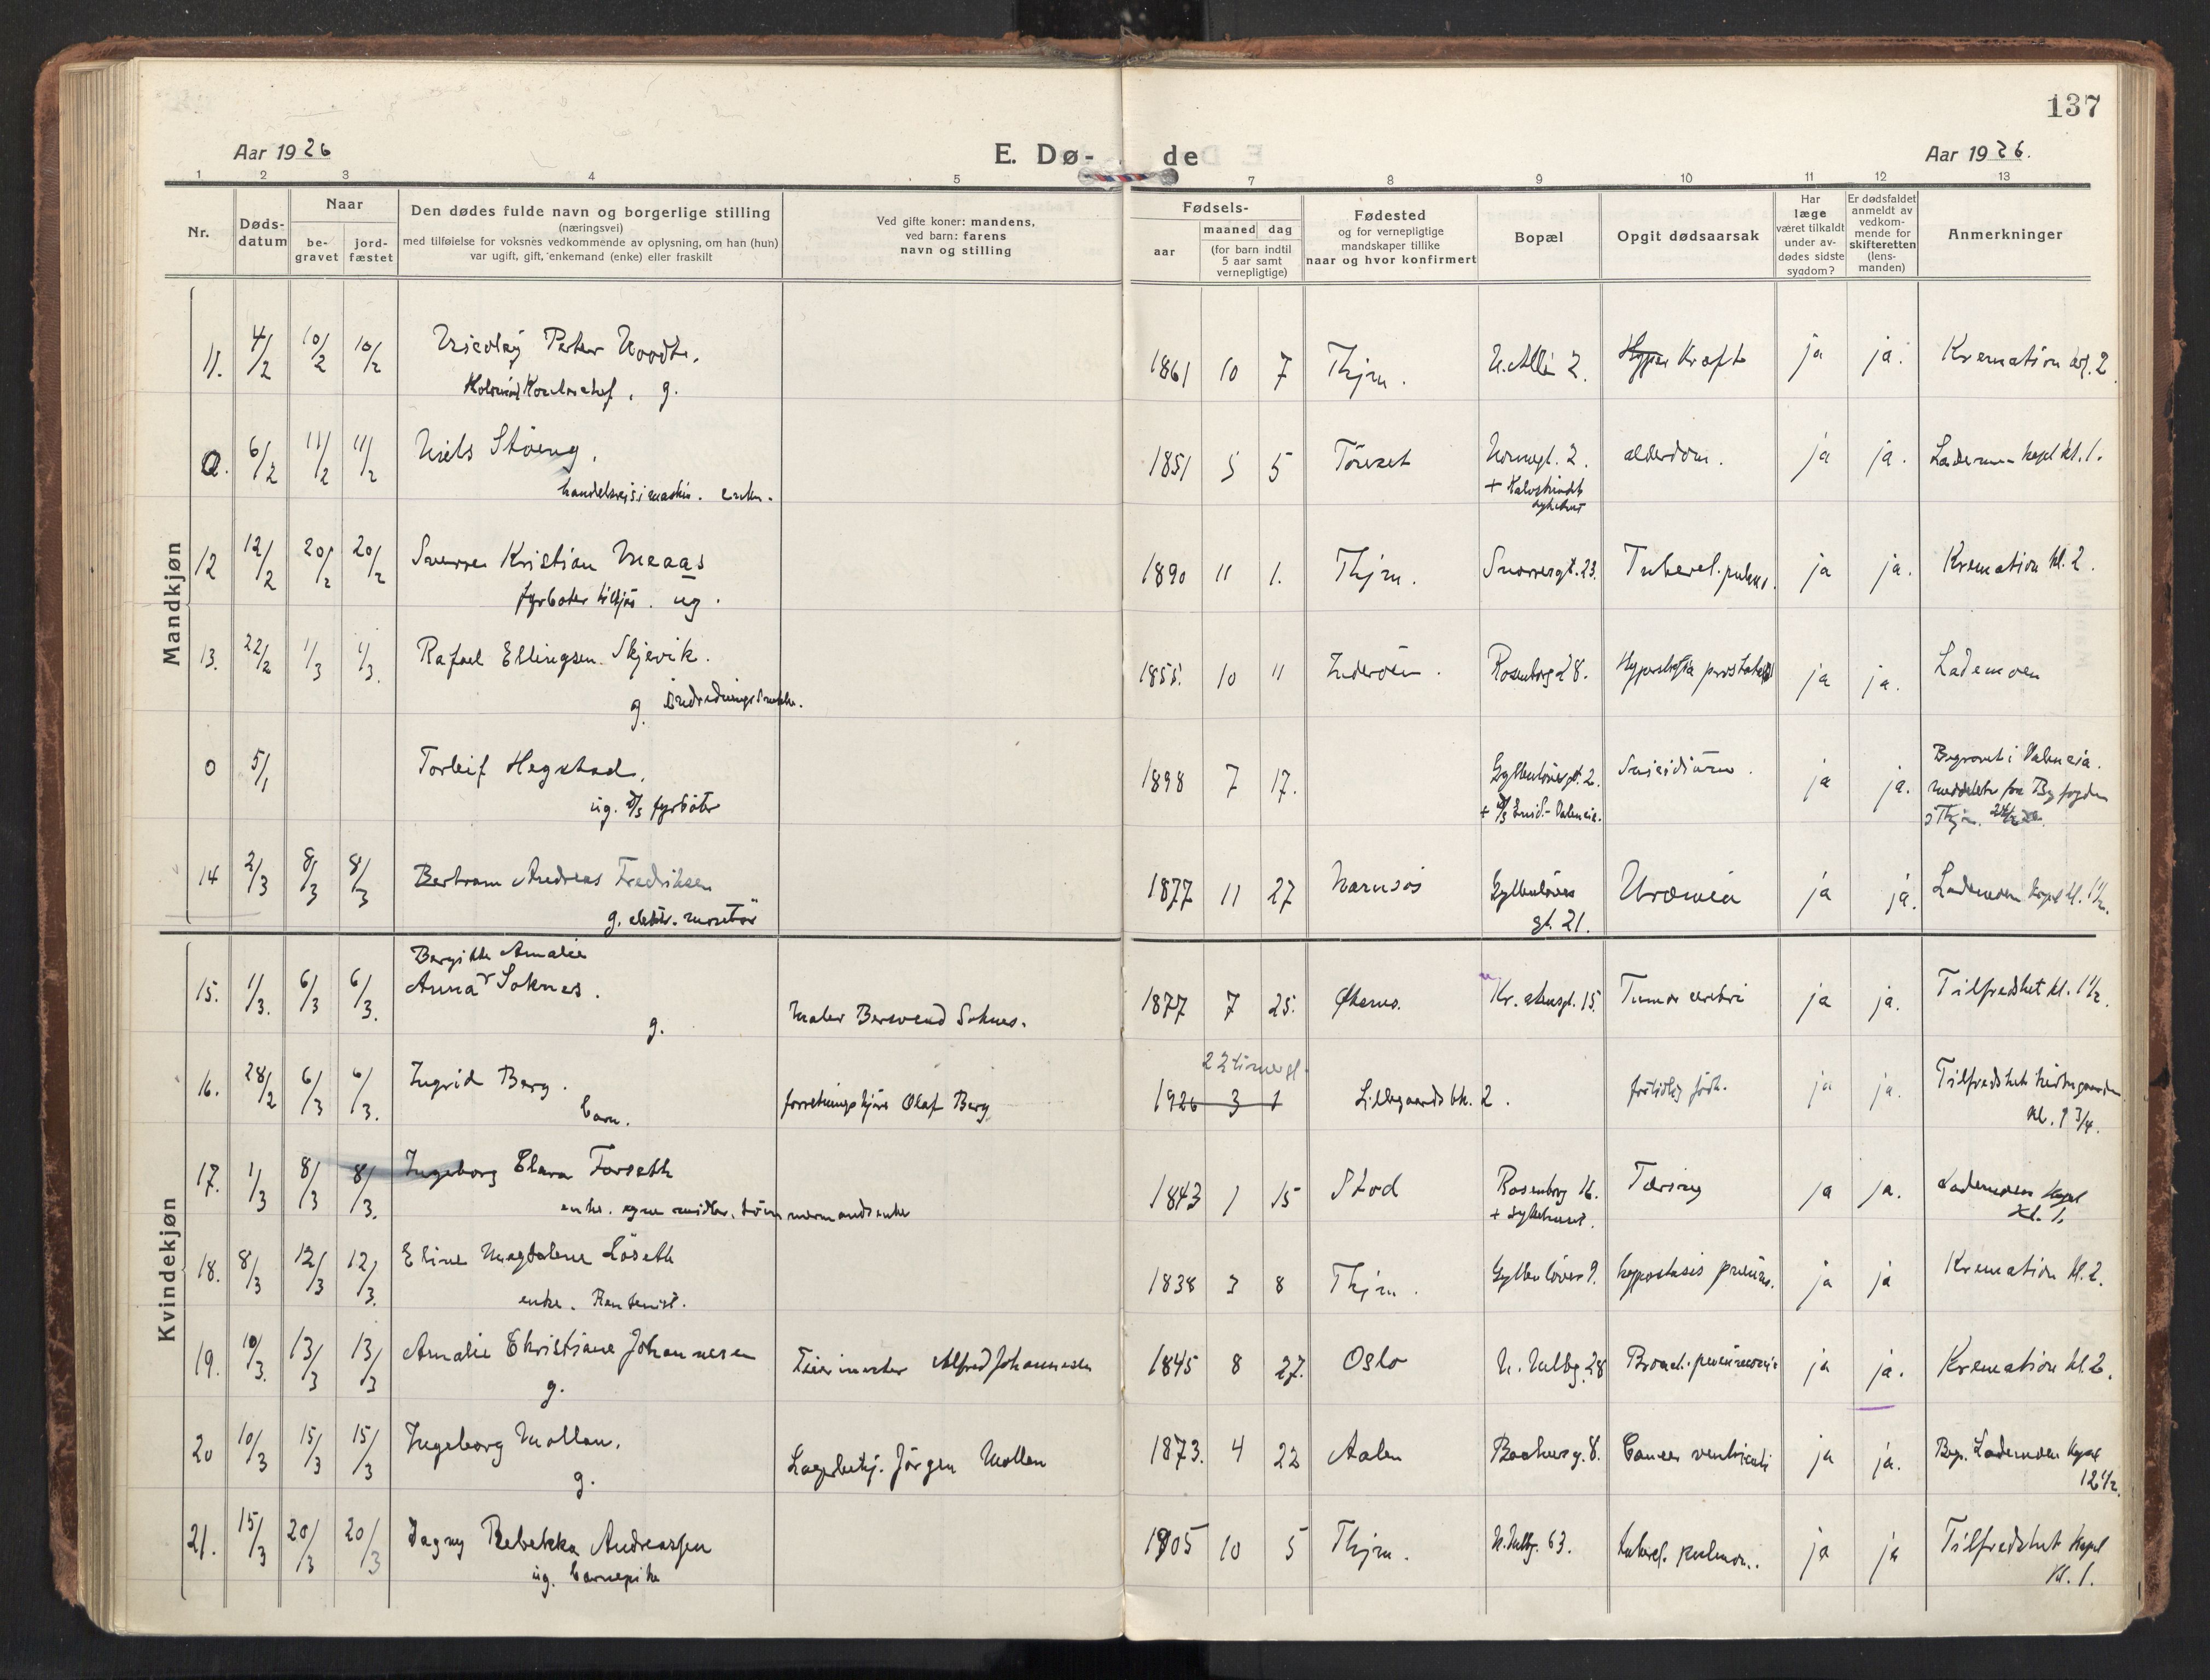 137
Aar 1926
E. Dø- de
Aar 1926.
1 2 3 4 5 7 8 9 10 11 12 13
Nr.
Døds-
datum
Naar
be-
gravet
jord-
fæstet
Den dødes fulde navn og borgerlige stilling
(næringsvei)
med tilføielse for voksnes vedkommende av oplysning, om han (hun)
var ugift, gift, enkemand (enke) eller fraskilt
Ved gifte koner: mandens,
ved barn: farens
navn og stilling
Fødsels-
aar
maaned dag
(for barn indtil
5 aar samt
vernepligtige)
Fødested
og for vernepligtige
mandskaper tillike
naar og hvor konfirmert
Bopæl
Opgit dødsaarsak
Har
læge
været tilkaldt
under av-
dødes sidste
sygdom?
Er dødsfaldet
anmeldt av
vedkom-
mende for
skifteretten
(lens-
manden)
Anmerkninger
Mandkjøn
11. 4/2 10/2 10/2 Nicolay Peter Noodt. 1861 10 7 Thjm. N. Allé 2. Kræft ja ja. Kremation kl. 2
g.
6/2 11/2 11/2 Niels Støeng. 1851 5 5 alderdom. ja ja. Lademoen kapel kl. 1.
12 12/2 20/2 20/2 Sverre Kristian Meaas 1890 11 1. Thjm. Snorresgt. 23. Tubercl. pulm. ja ja. Kremation kl. 2.
fyrbøter ug.
13. 22/2 1/3 1/3. Rafael Ellingsen Skjevik. 1855. 10 11 Inderøen. Rosenborg 28. Hypertrofia prostatae ja ja. Lademoen
g.
0 5/1 Torleif Hegstad. 1898 7 17. Gyldenløvesgt. 2. Suicidium. ja ja. Begravet i Valencia.
ug. D/S fyrbøter + D/S - Valencia. meddelt fra Byfogden
i Thjm.
14 2/3 8/3 8/3 Bertram Andreas Fredriksen 1877 11 27 Namsos Gyldenløves Uræmia ja ja. Lademoen kapel kl. 1 1/2.
g. elektr. montør gt. 21.
Kvindekjøn
Bergitte Amalie
15. 1/3. 6/3 6/3. Anna Soknes. Maler Bersvend Soknes. 1877 7 25. Kr. gt. 15. Tumor cerebri ja ja. Tilfredshet kl. 1 1/2.
g.
22 timer gl.
16. 28/2 6/3 6/3. Ingrid Berg. forretningsbetjene Olaf Berg 1926 3 1 Lillegaardsbk. 2. fortidlig født. ja ja. Tilfredshet
barn. kl. 1 3/4.
17. 1/3 8/3 8/3. Ingeborg Elara Forseth 1843 1 15 Stod Rosenborg 16. Tæring ja ja. Lademoen kapel
enke. egne midler. tømmermandsenke + Sykehuset. kl. 1.
18. 8/3 12/3 12/3. Eline Magdalene Løseth 1838 3 8 Thjm. Gyldenløves 9. hypostasis pneum. ja ja Kremation kl. 2.
enke. Rentenist.
19. 10/3. 13/3 13/3 Amalie Christiane Johannesen Feiermester Alfred Johannesen 1845 8 27. Oslo N. Møllbg. 28 Bronch. pneumonia ja ja. Kremation kl. 2.
g.
20 10/3 15/3 15/3 Ingeborg Mollan. Lagerbetj. Jørgen Mollan 1873. 4 22 Aalen Baahusg. 8. Cancer ventriculi ja ja. Beg. Lademoen kapel
g. 12 1/2.
21. 15/3 20/3 20/3 Dagny Rebekka Andreassen 1905 10 5 Thjm. N. Møllbg. 63. tubercl. pulmon. ja ja Tilfredshet kapel
ug. barnepike kl. 1.